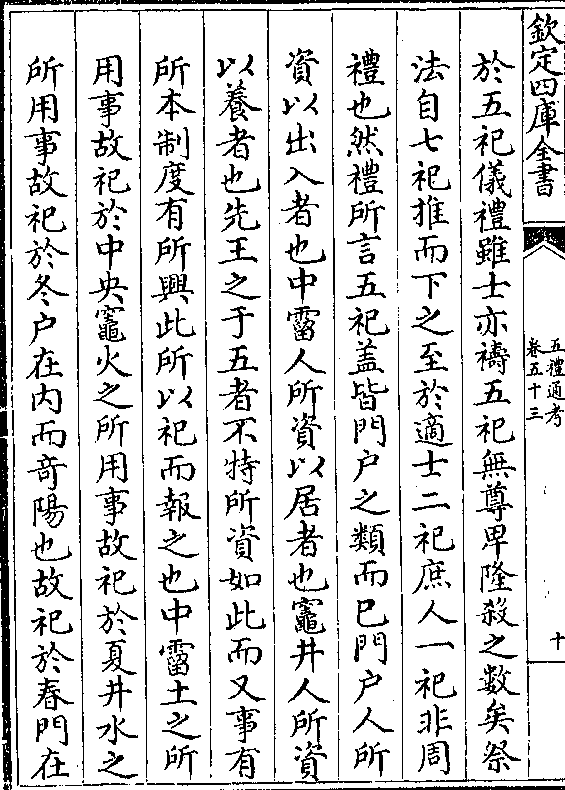 欽定四庫全書
五禮通考
卷五十三
十
於五祀儀禮雖士亦禱五祀無尊卑隆殺之數矣祭
法自七祀推而下之至於適士二祀庶人一祀非周
禮也然禮所言五祀盖皆門户之類而已門户人所
資以出入者也中霤人所資以居者也竈井人所資
以養者也先王之于五者不特所資如此而又事有
所本制度有所興此所以祀而報之也中霤土之所
用事故祀於中央竈火之所用事故祀於夏井水之
所用事故祀於冬户在内而竒陽也故祀於春門在